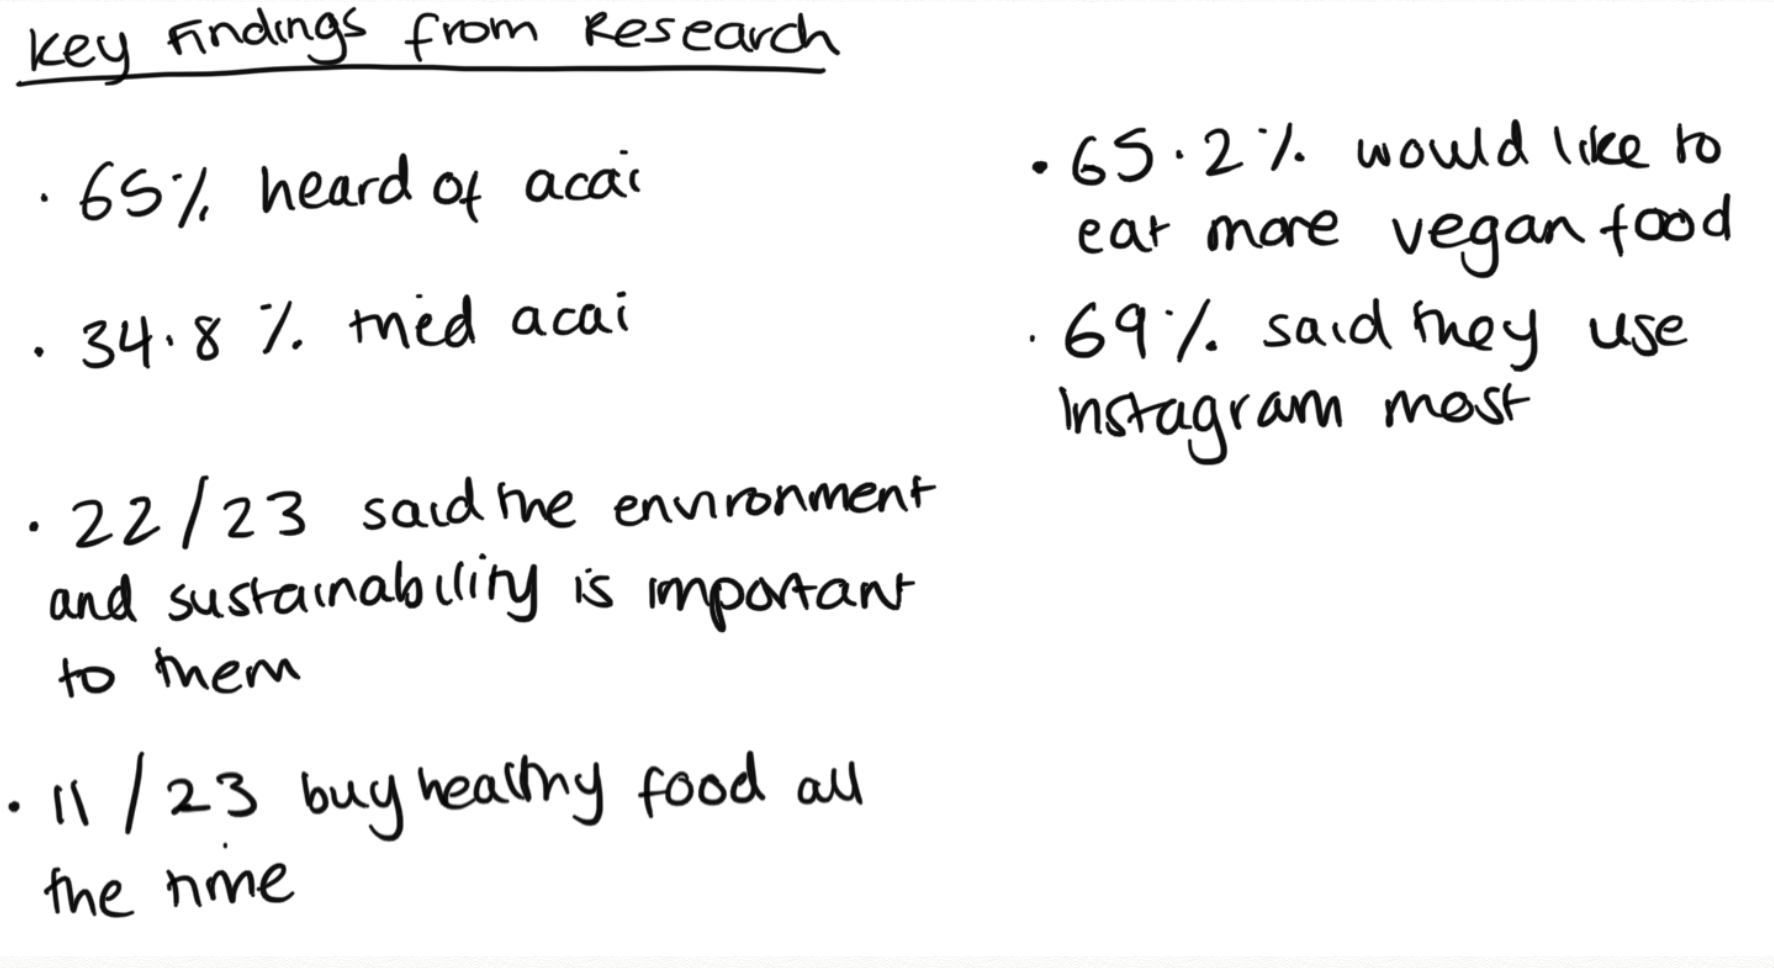 Key Findings from Research
· 65% heard of acai
· 34.8% tried acai
· 22/23 said the environment
and sustainability is important
to them
· 11/23 buy healthy food all
the time
· 65.2% would like to
eat more vegan food
· 69% said they use
Instagram most